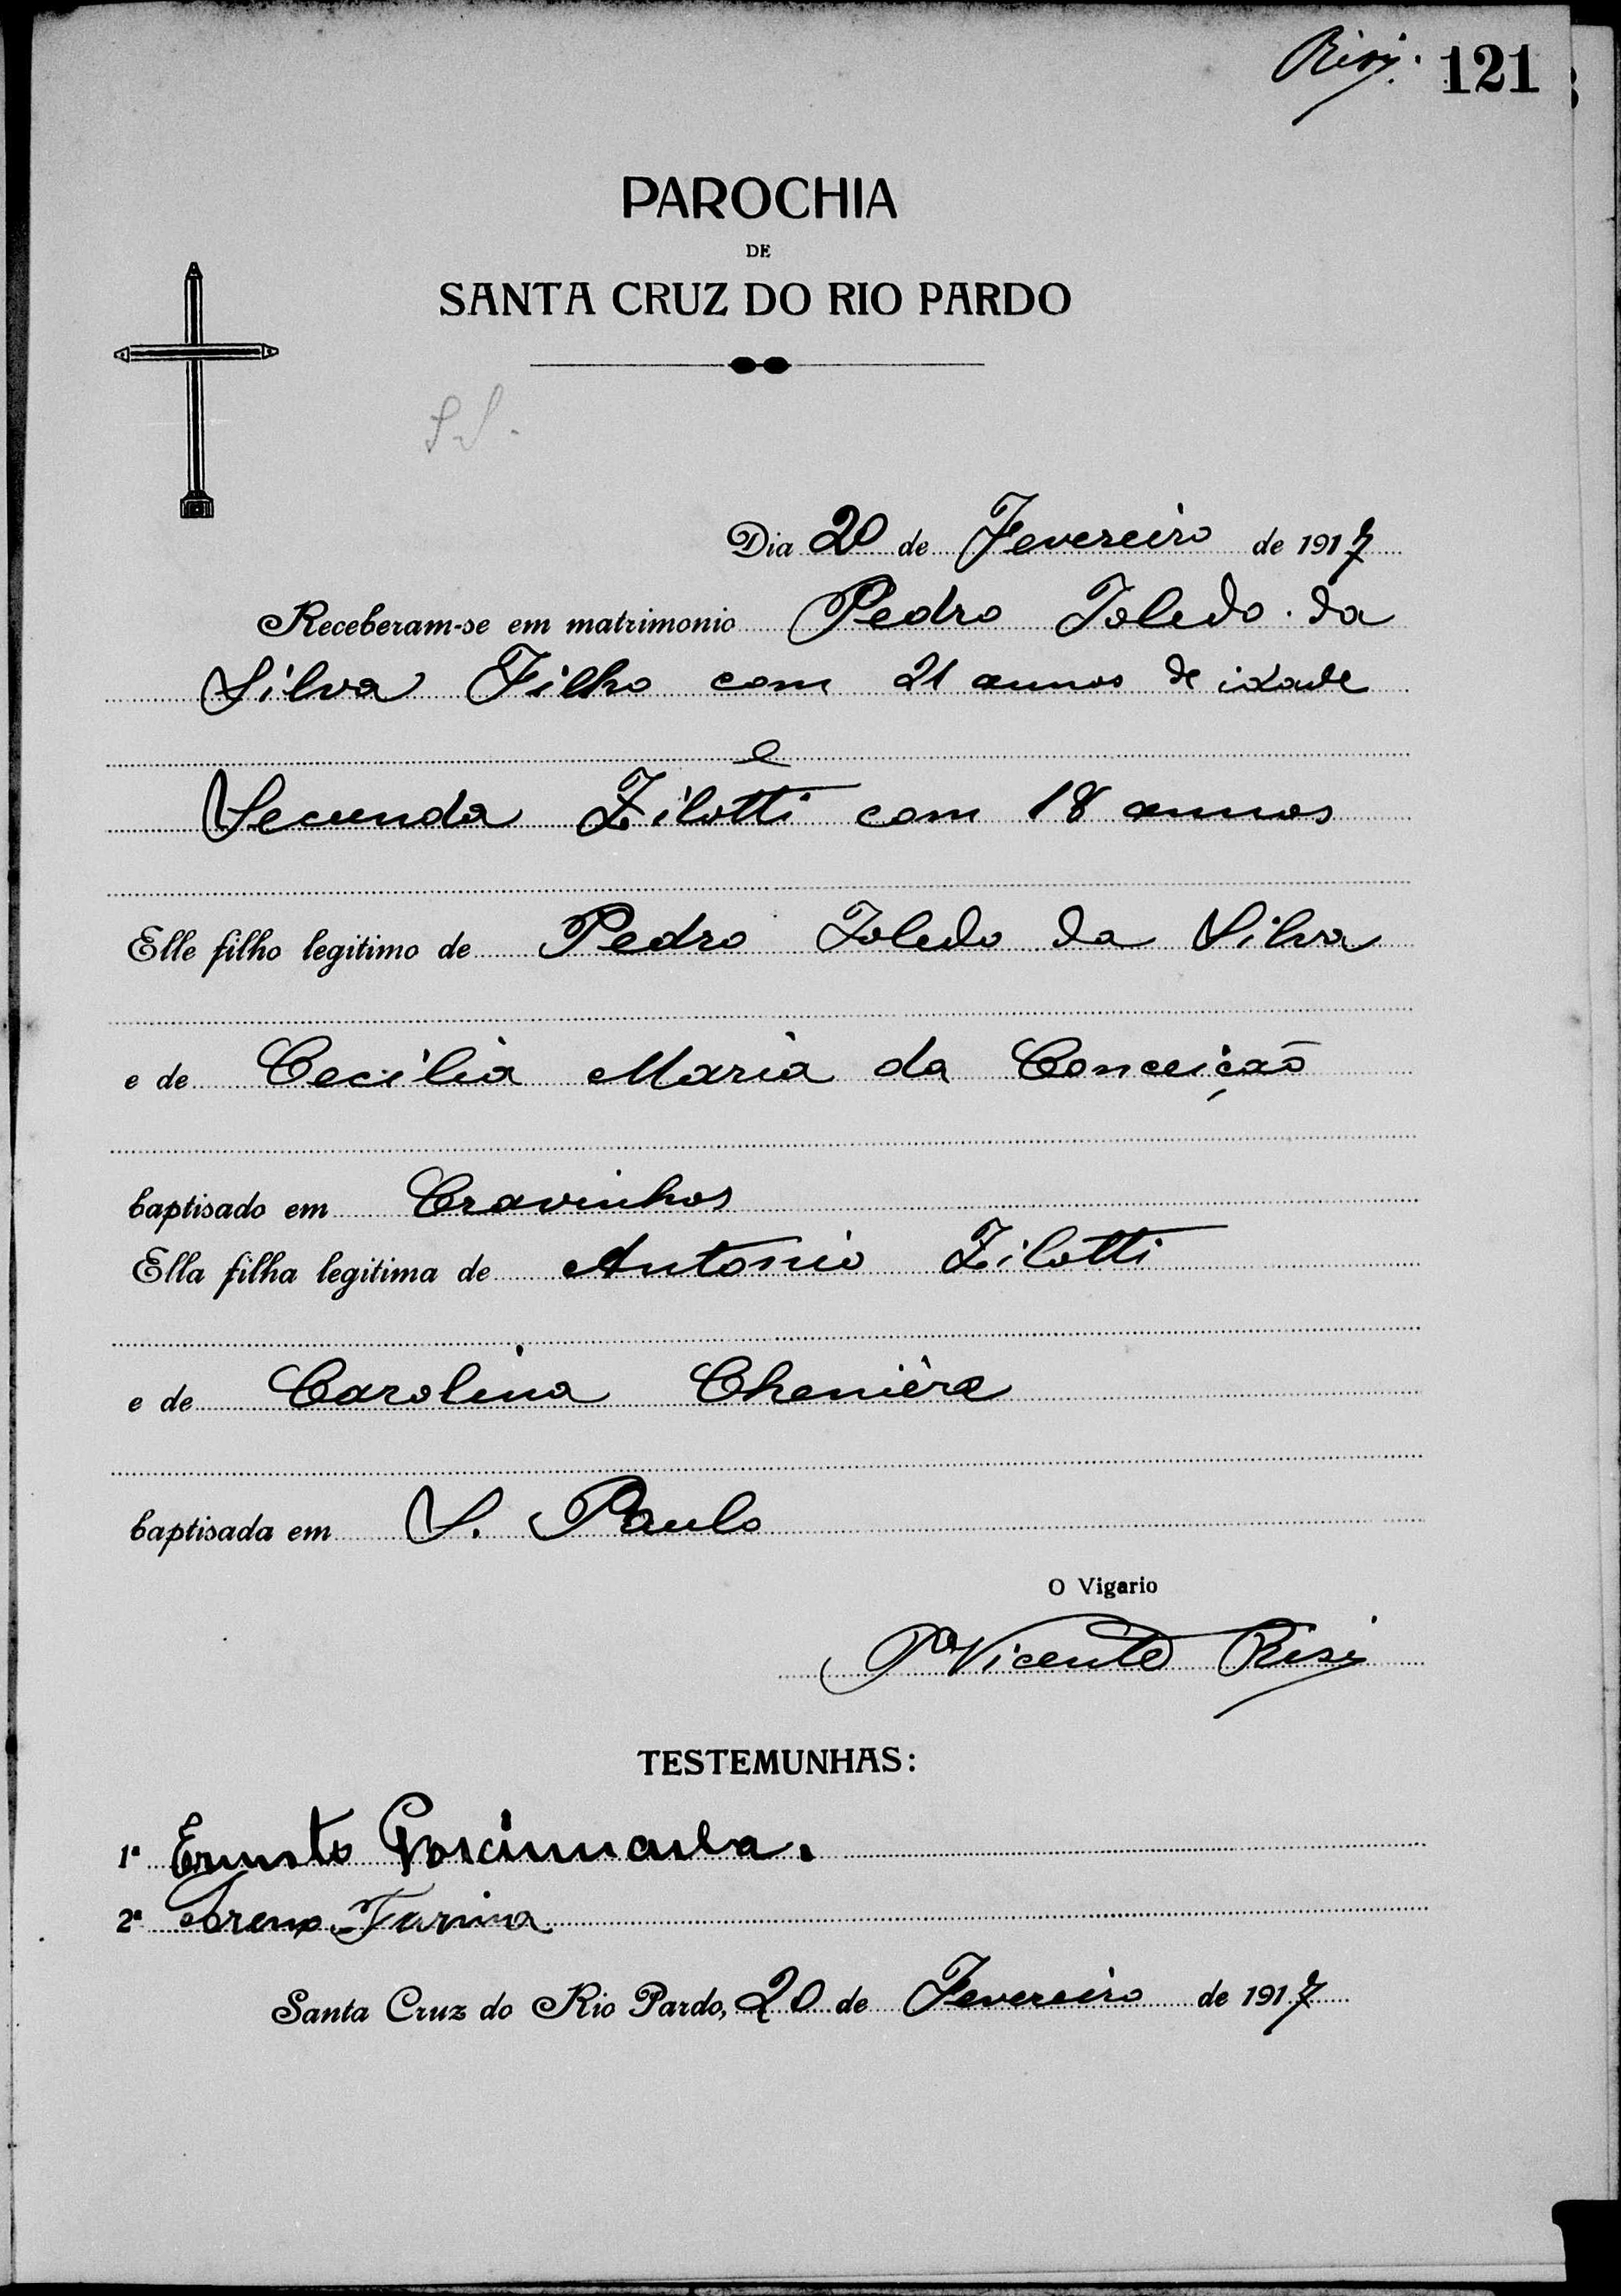 Risi. 121
PAROCHIA
DE
SANTA CRUZ DO RIO PARDO
Dia 20 de Fevereiro de 1917
Receberam-se em matrimonio Pedro Toledo da
Silva Filho com 21 annos de idade
e
Secunda Zilotti com 18 annos
Elle filho legitimo de Pedro Toledo da Silva
e de Cecilia Maria da Conceição
baptisado em Cravinhos
Ella filha legitima de Antonio Zilotti
e de Carolina Chenièra
baptisada em S. Paulo
O Vigario
Pe Vicente Risi
TESTEMUNHAS:
1ª Ernesto
2ª Farina
Santa Cruz do Rio Pardo, 20 de Fevereiro de 1917